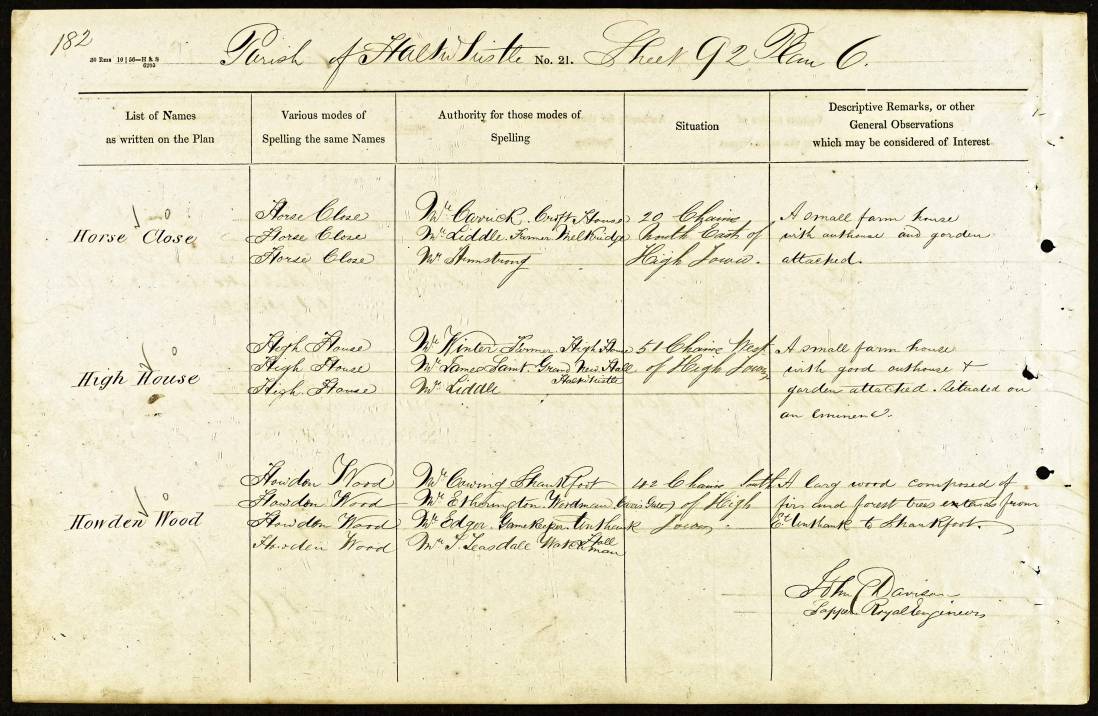 182
30 Rms 10 | 56—H & S
6205
Parish of Haltwhistle No. 21. Sheet 92 Plan 6.
List of Names
as written on the Plan
Various modes of
Spelling the same Names
Authority for those modes of
Spelling
Situation
Descriptive Remarks, or other
General Observations
which may be considered of Interest
Horse Close
Horse Close
Horse Close
Horse Close
Mr. Carrick. Croft House
Mr. Liddle. Farmer Melkridge
Mr. Armstrong
20 Chains
North East of
High Town.
A small farm house
with outhouse and garden
attached.
High House
High House
High House
High House
Mr. Winter Farmer High House
Mr. James Saint. Grand New Hall
Haltwhistle
Mr. Liddle
51 Chains West
of High Town
A small farm house
with good outhouse &
garden attached. Situated on
an eminence.
Howden Wood
Howden Wood
Howden Wood
Howden Wood
Howden Wood
Mr. Cowing Shankfoot
Mr. Etherington Woodman
Mr. Edgar. Gamekeeper. Unthank
Hall
Mr. T. Teasdale Watchman
42 Chains South
of High
Town.
A larg wood composed of
firs and forest trees extends from
Et. Unthank to Shankfoot.
John C Davison
Sapper Royal Engineers